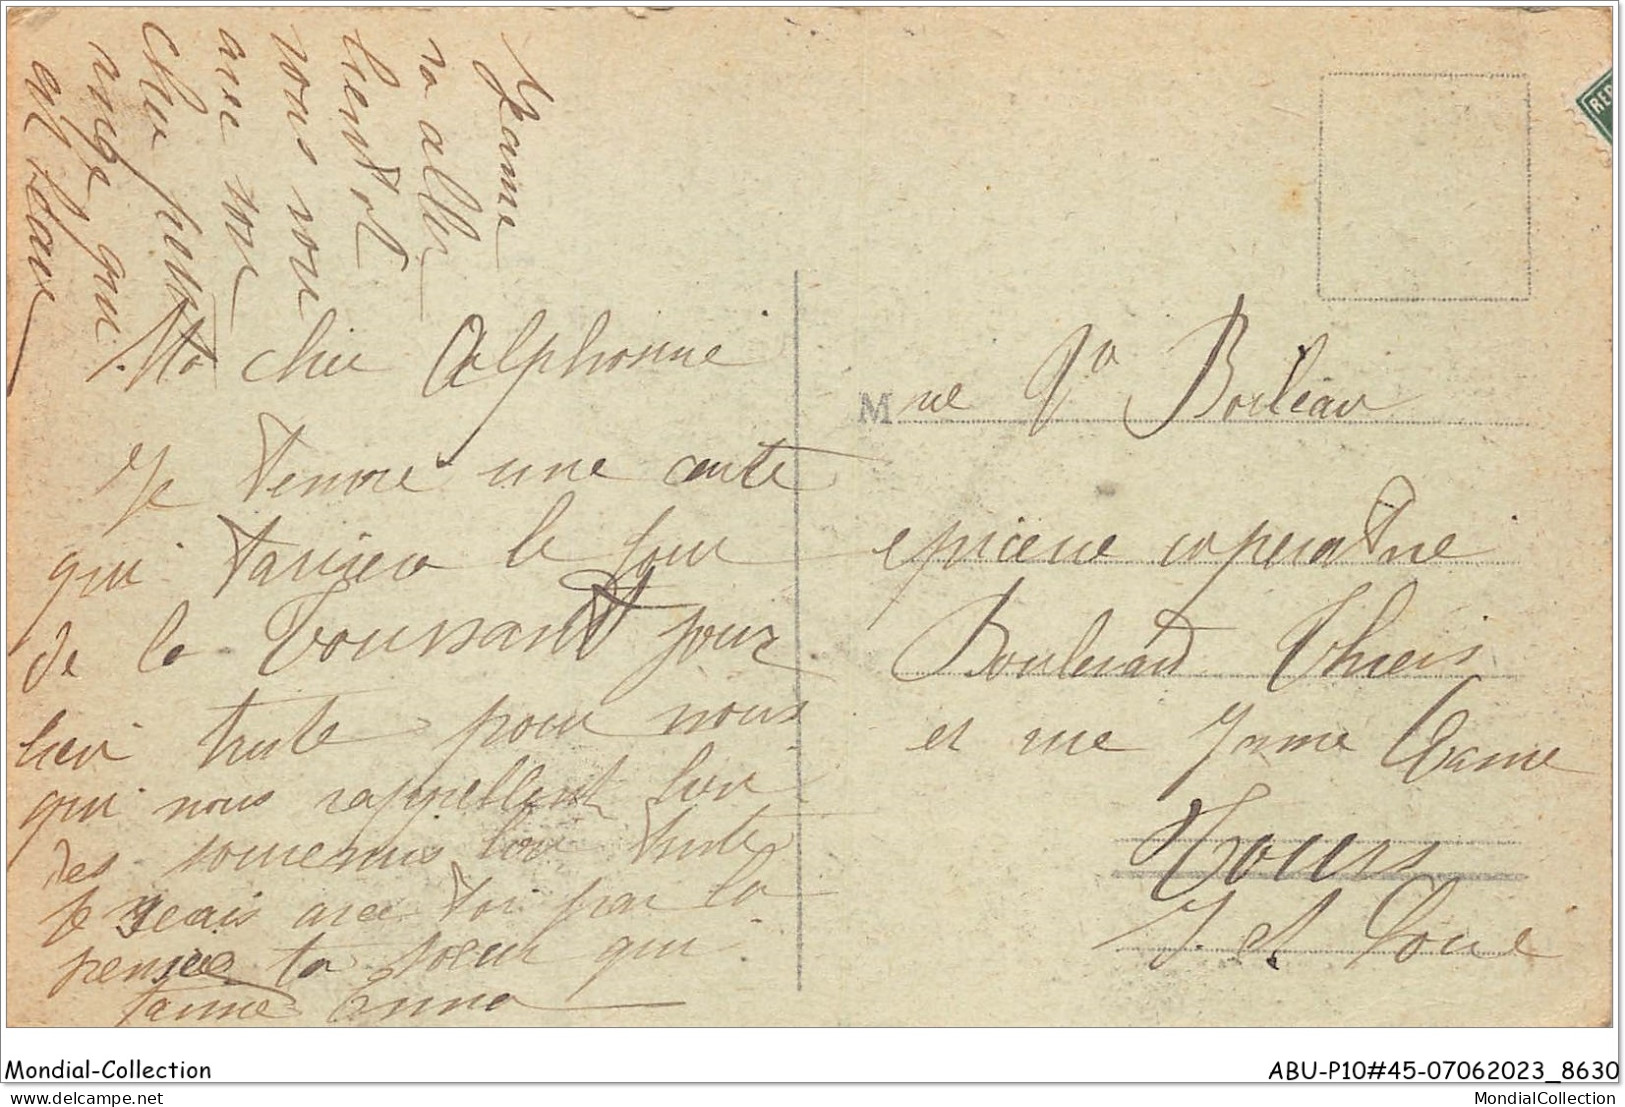 Jeanne
va aller
bientot
vous voir
avec son
cher petit
ange qui
est
Ma cher Alphonsine
Je tenvoie une carte
qui tarivera le jour
de la Toussant jour
bien triste pour nous
qui nous rappellent bien
des souvenirs bien triste
Je serais avec toi par la
pensee ta soeur qui
taime Anna
Mme Va Boileau
epicerie coperative
Boulevard Thiers
et rue
Tours
I. et Loire
REP
Mondial-Collection
ABU-P10#45-07062023_8630
delcampe.net
MondialCollection